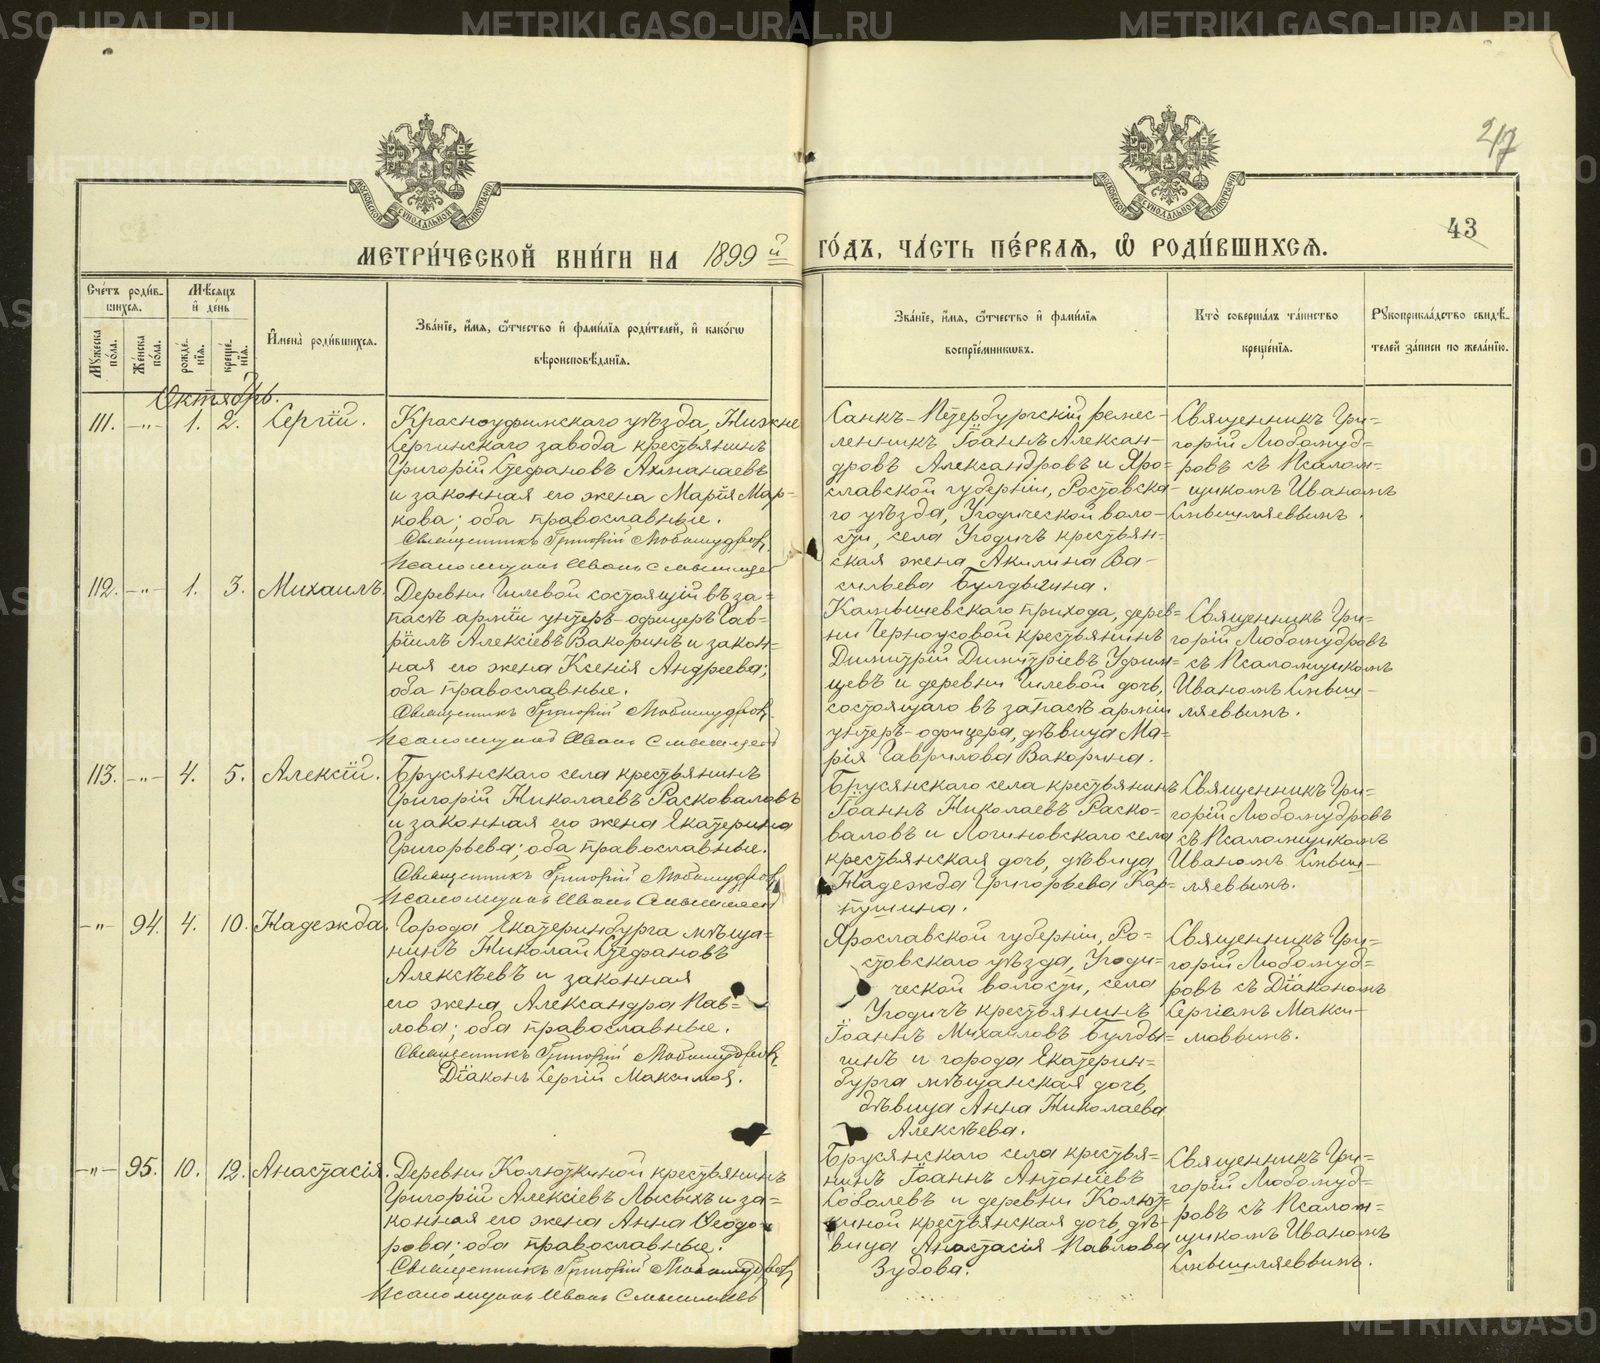 METRIKI.GASO-URAL.RU
217
43
МЕТРИ́ЧЕСКОЙ КНИ́ГИ НА 1899 й ГО́ДЪ, ЧА́СТЬ ПЕ́РВАЯ, Ѡ РОДИ́ВШИХСЯ.
Сче́тъ роди́в-
шихся.
Мѣ́сяцъ
и҆ де́нь
Мꙋ́жеска по́ла.
Же́нска по́ла.
рожде́-
нїѧ.
креще́-
нїѧ.
И҆мена̀ роди́вшихся.
Зва́нїе, и҆́мѧ, ѻ҆́тчество и҆ фами́лїѧ роди́телей, и҆ како́гѡ
вѣроисповѣ́данїѧ.
Зва́нїе, и҆́мѧ, ѻ҆́тчество и҆ фами́лїѧ
воспрїе́мникѡвъ.
Кто̀ соверша́лъ та́инство
креще́нїѧ.
Рꙋкоприкла́дство свидѣ́-
телей за́писи по жела́нїю.
Октябрь.
111. -„- 1. 2. Сергій.
Красноуфимскаго уѣзда, Нижне
Сергинскаго завода крестьянинъ
Григорій Стефановъ Ахманаевъ
и законная его жена Марія Мар-
кова; оба православные.
Священникъ Григорій Любомудровъ,
Псаломщикъ Иванъ Смышляевъ
Санкъ-Петербургскій ремес-
ленникъ Іоаннъ Алексан-
дровъ Александровъ и Яро-
славской губерніи, Ростовска-
го уѣзда, Угодической воло-
сти, села Угодичъ крестьян-
ская жена Акилина Ва-
сильева Булдыгина.
Священникъ Гри-
горій Любомуд-
ровъ съ Псалом-
щикомъ Иваномъ
Смышляевымъ.
112. -„- 1. 3. Михаилъ.
Деревни Гилевой состоящій въ за-
пасѣ арміи унтеръ-офицеръ Гав-
ріилъ Алексіевъ Вакоринъ и закон-
ная его жена Ксенія Андреева;
оба православные.
Священникъ Григорій Любомудровъ,
Псаломщикъ Иванъ Смышляевъ
Камышевскаго прихода, дерев-
ни Черноусовой крестьянинъ
Димитрій Димитріевъ Уфим-
цевъ и деревни Гилевой дочь,
состоящаго въ запасѣ арміи
унтеръ-офицера, дѣвица Ма-
рія Гаврилова Вакорина.
Священникъ Гри-
горій Любомудровъ
съ Псаломщикомъ
Иваномъ Смыш-
ляевымъ.
113. -„- 4. 5. Алексій.
Брусянскаго села крестьянинъ
Григорій Николаевъ Расковаловъ
и законная его жена Екатерина
Григорьева; оба православные.
Священникъ Григорій Любомудровъ,
Псаломщикъ Иванъ Смышляевъ
Брусянскаго села крестьянинъ
Іоаннъ Николаевъ Раско-
валовъ и Логиновскаго села
крестьянская дочь, дѣвица
Надежда Григорьева Кар-
пушина.
Священникъ Гри-
горій Любомудровъ
съ Псаломщикомъ
Иваномъ Смыш-
ляевымъ.
-„- 94. 4. 10. Надежда.
Города Екатеринбурга мѣща-
нинъ Николай Стефановъ
Алексѣевъ и законная
его жена Александра Пав-
лова; оба православные.
Священникъ Григорій Любомудровъ,
Діаконъ Сергій Максимовъ.
Ярославской губерніи, Ро-
стовскаго уѣзда, Угоди-
ческой волости, села
Угодичъ крестьянинъ
Іоаннъ Михаиловъ Булды-
гинъ и города Екатерин-
бурга мѣщанская дочь,
дѣвица Анна Николаева
Алексѣева.
Священникъ Гри-
горій Любомуд-
ровъ съ Діакономъ
Сергіемъ Макси-
мовымъ.
-„- 95. 10. 12. Анастасія.
Деревни Колюткиной крестьянинъ
Григорій Алексіевъ Лысыхъ и за-
конная его жена Анна Ѳеодо-
рова; оба православные.
Священникъ Григорій Любомудровъ,
Псаломщикъ Иванъ Смышляевъ
Брусянскаго села крестья-
нинъ Іоаннъ Антоніевъ
Соболевъ и деревни Колют-
киной крестьянская дочь, дѣ-
вица Анастасія Павлова
Зудова.
Священникъ Гри-
горій Любомуд-
ровъ съ Псалом-
щикомъ Иваномъ
Смышляевымъ.